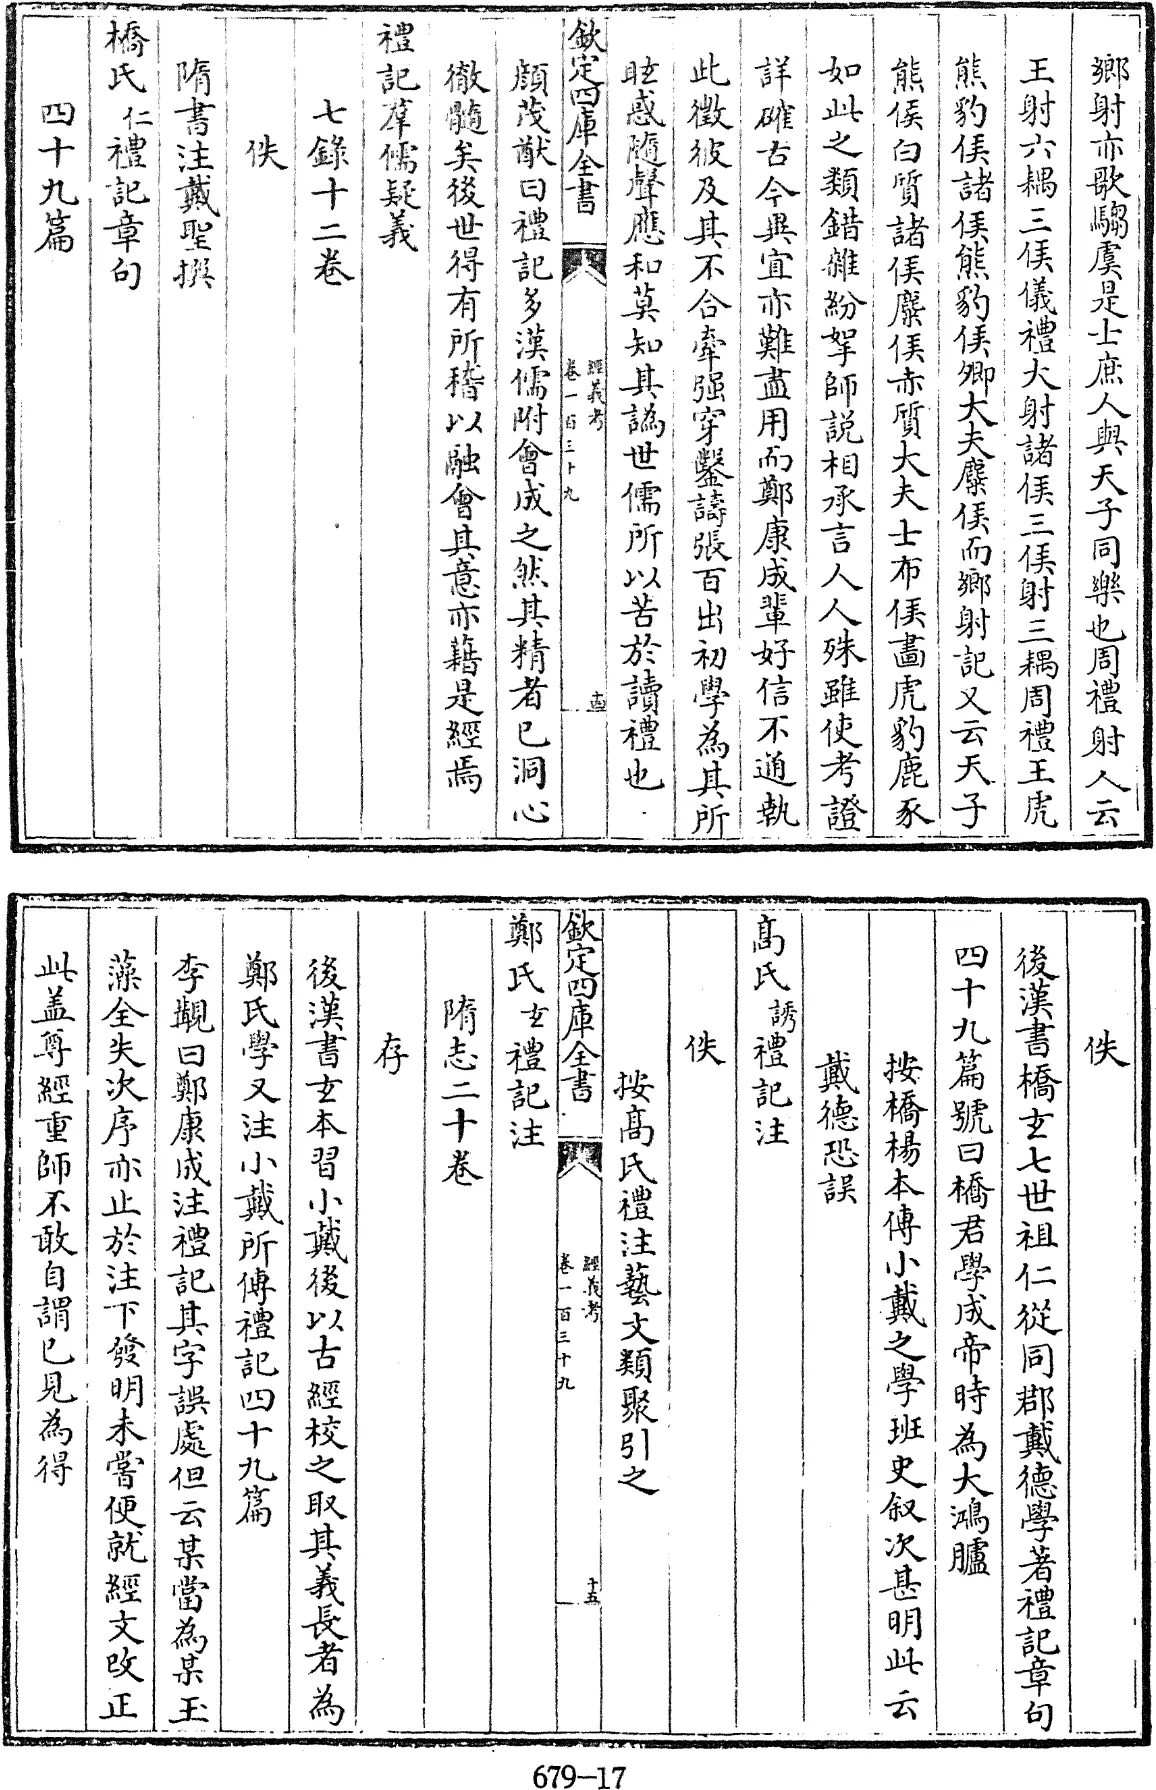 鄉射亦歌騶虞是士庶人與天子同樂也周禮射人云
王射六耦三侯儀禮大射諸侯三侯射三耦周禮王虎
熊豹侯諸侯熊豹侯卿大夫麋侯而鄉射記又云天子
熊侯白質諸侯麋侯赤質大夫士布侯畫虎豹鹿豕
如此之類錯雜紛拏師説相承言人人殊雖使考證
詳確古今異宜亦難盡用而鄭康成輩好信不通執
此徵彼及其不合牽强穿鑿譸張百出初學為其所
眩惑隨聲應和莫知其譌世儒所以苦於讀禮也
欽定四庫全書
經義考
卷一百三十九
十四
顔茂猷曰禮記多漢儒附會成之然其精者已洞心
徹髓矣後世得有所稽以融會其意亦藉是經焉
禮記羣儒疑義
七錄十二卷
佚
隋書注戴聖撰
橋氏仁禮記章句
四十九篇
佚
後漢書橋玄七世祖仁從同郡戴德學著禮記章句
四十九篇號曰橋君學成帝時為大鴻臚
按橋楊本傳小戴之學班史叙次甚明此云
戴德恐誤
高氏誘禮記注
佚
按高氏禮注藝文類聚引之
欽定四庫全書
經義考
卷一百三十九
十五
鄭氏玄禮記注
隋志二十卷
存
後漢書玄本習小戴後以古經校之取其義長者為
鄭氏學又注小戴所傳禮記四十九篇
李覯曰鄭康成注禮記其字誤處但云某當為某玉
藻全失次序亦止於注下發明未嘗便就經文改正
此盖尊經重師不敢自謂已見為得
679-17